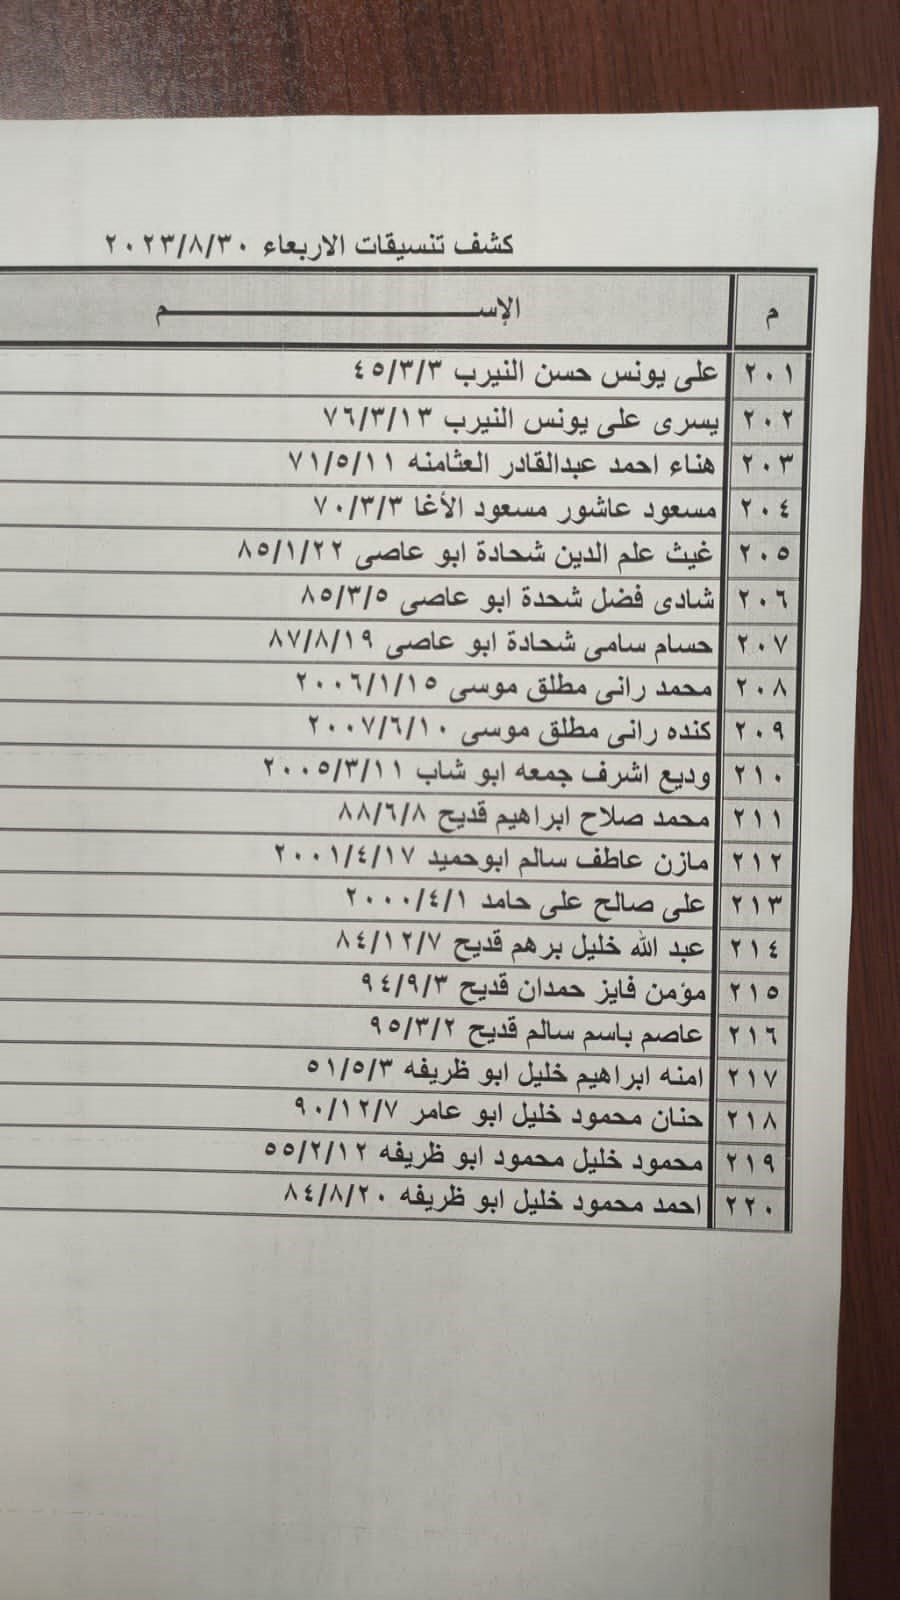 كشف تنسيقات الاربعاء ٢٠٢٣/٨/٣٠
م الإســـــــــــــــــــــــــم
٢٠١ على يونس حسن النيرب ٤٥/٣/٣
٢٠٢ يسرى على يونس النيرب ٧٦/٣/١٣
٢٠٣ هناء احمد عبدالقادر العثامنه ٧١/٥/١١
٢٠٤ مسعود عاشور مسعود الأغا ٧٠/٣/٣
٢٠٥ غيث علم الدين شحادة ابو عاصى ٨٥/١/٢٢
٢٠٦ شادى فضل شحدة ابو عاصى ٨٥/٣/٥
٢٠٧ حسام سامى شحادة ابو عاصى ٨٧/٨/١٩
٢٠٨ محمد رانى مطلق موسى ٢٠٠٦/١/١٥
٢٠٩ كنده رانى مطلق موسى ٢٠٠٧/٦/١٠
٢١٠ وديع اشرف جمعه ابو شاب ٢٠٠٥/٣/١١
٢١١ محمد صلاح ابراهيم قديح ٨٨/٦/٨
٢١٢ مازن عاطف سالم ابوحميد ٢٠٠١/٤/١٧
٢١٣ على صالح على حامد ٢٠٠٠/٤/١
٢١٤ عبد الله خليل برهم قديح ٨٤/١٢/٧
٢١٥ مؤمن فايز حمدان قديح ٩٤/٩/٣
٢١٦ عاصم باسم سالم قديح ٩٥/٣/٢
٢١٧ امنه ابراهيم خليل ابو ظريفه ٥١/٥/٣
٢١٨ حنان محمود خليل ابو عامر ٩٠/١٢/٧
٢١٩ محمود خليل محمود ابو ظريفه ٥٥/٢/١٢
٢٢٠ احمد محمود خليل ابو ظريفه ٨٤/٨/٢٠